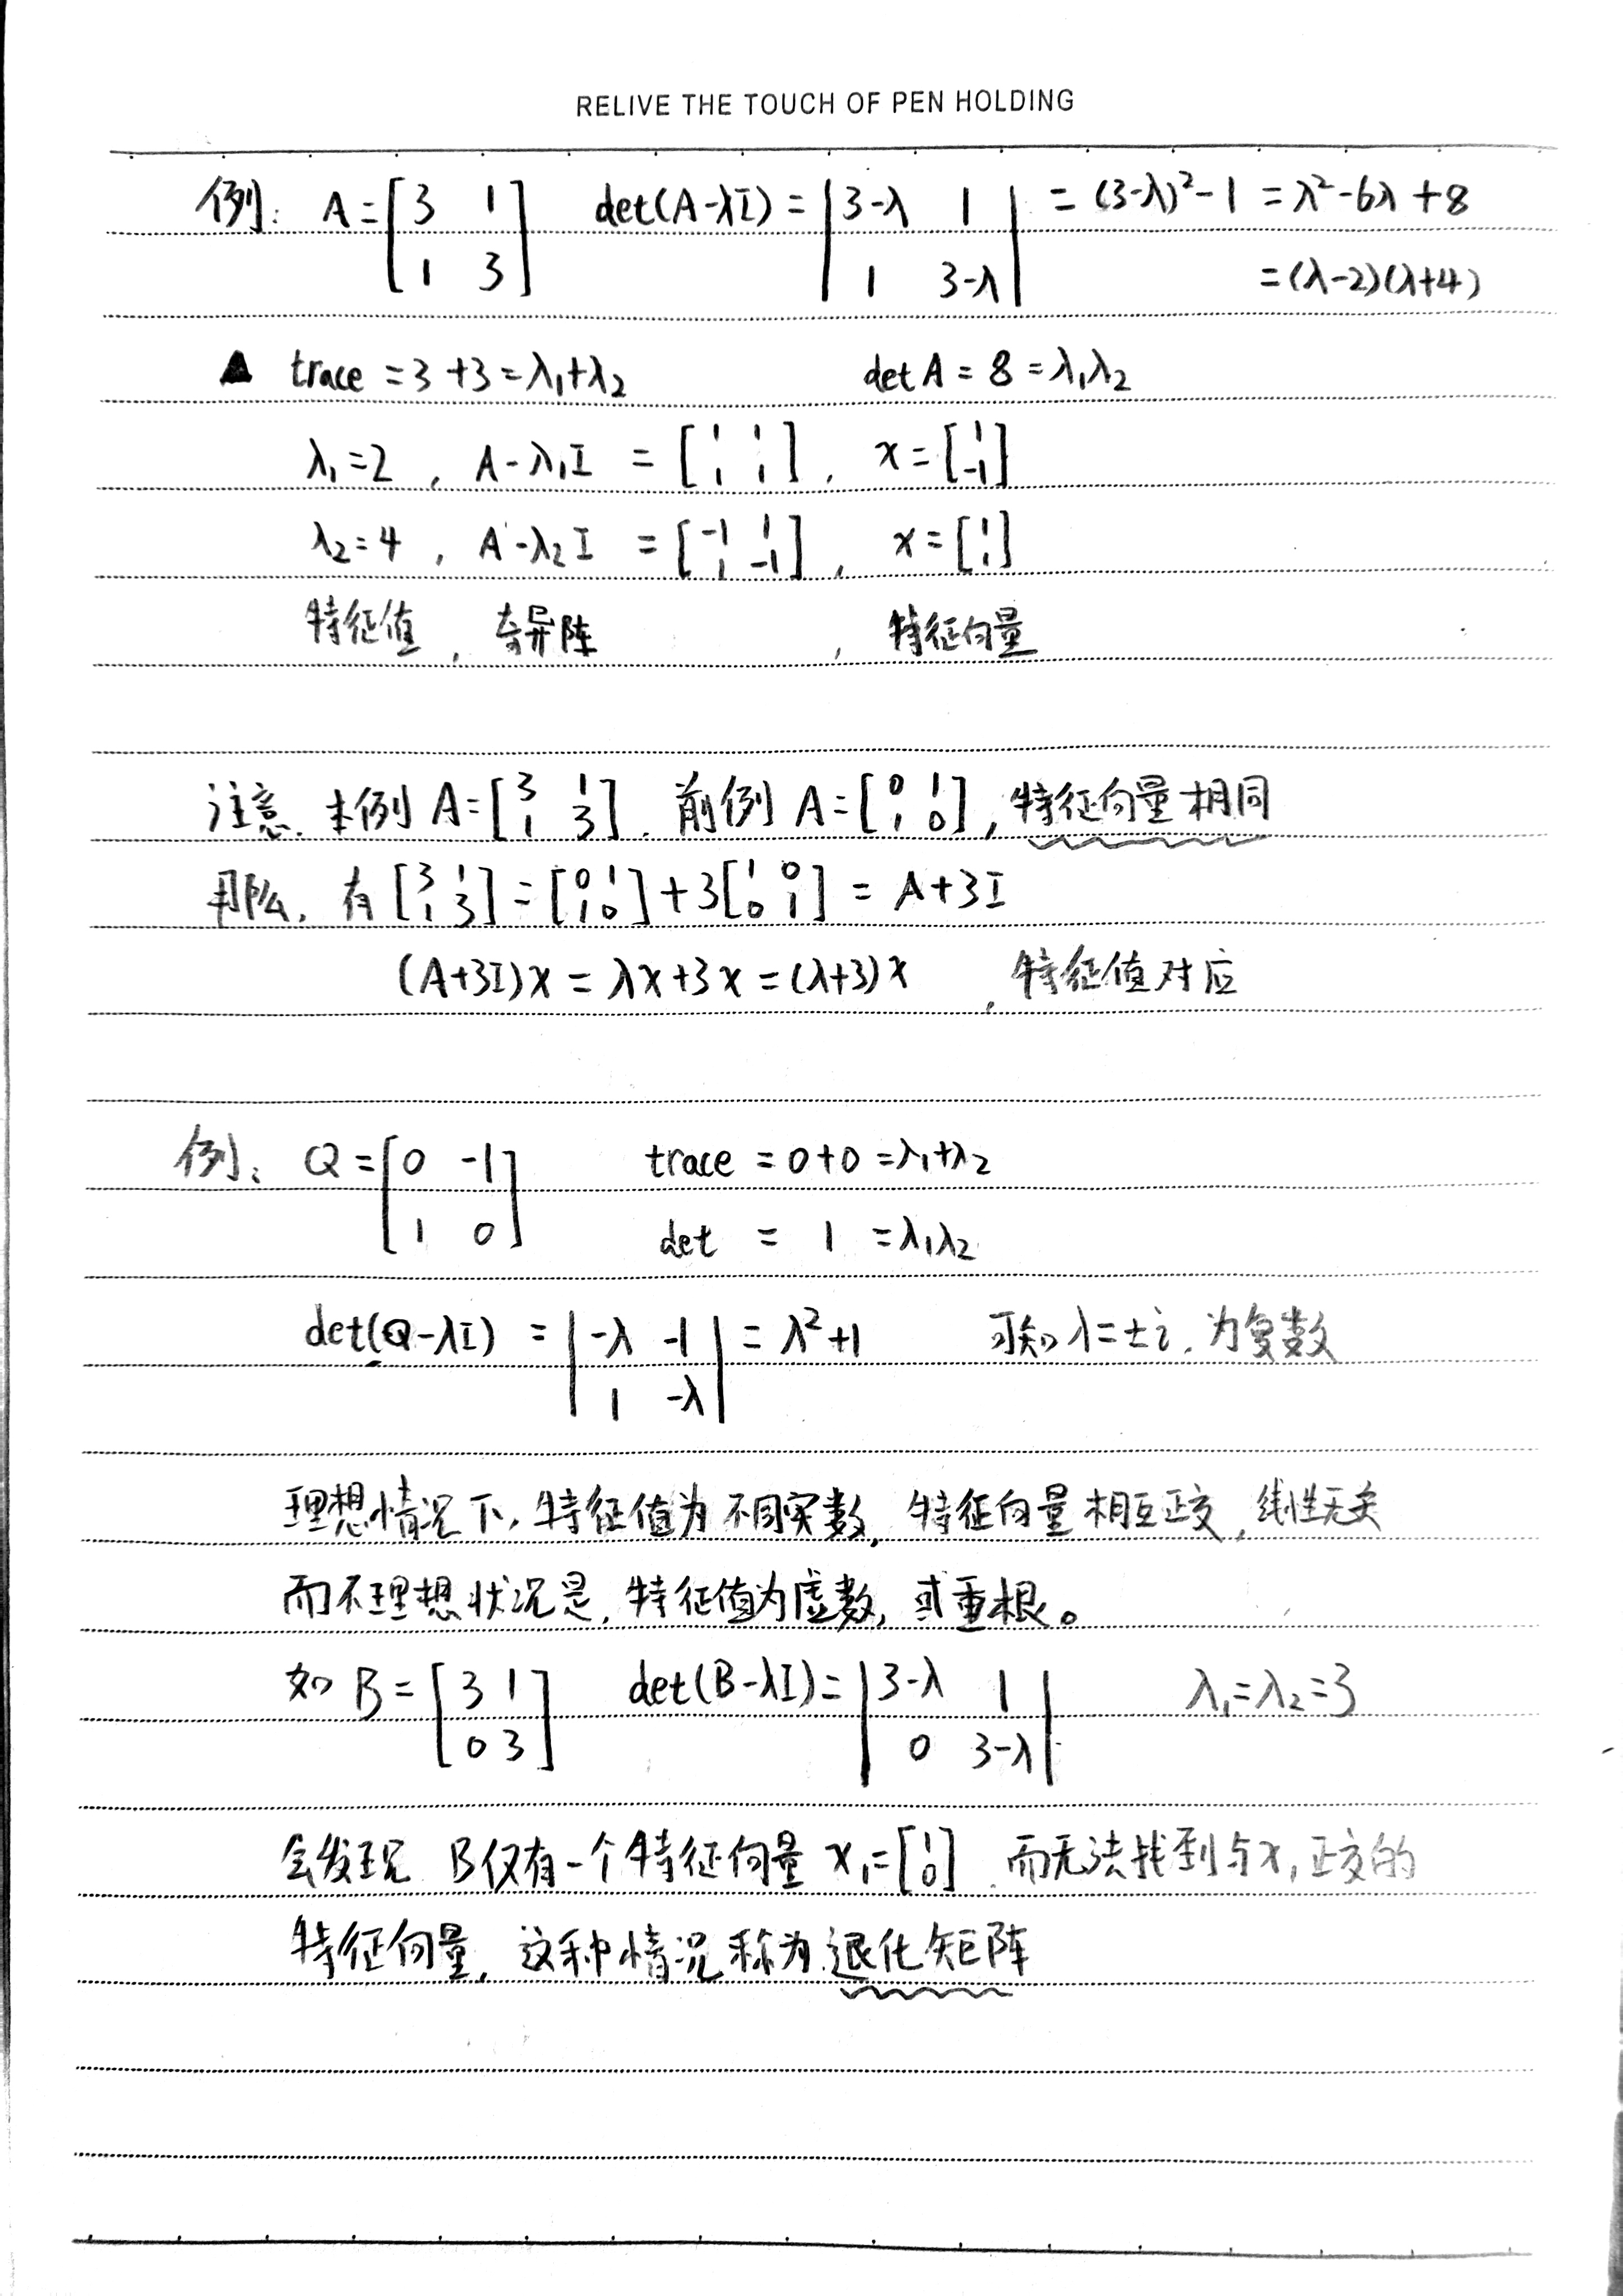 RELIVE THE TOUCH OF PEN HOLDING
例: A = [3 1; 1 3] det(A-λI) = |3-λ 1; 1 3-λ| = (3-λ)²-1 = λ²-6λ+8
= (λ-2)(λ+4)
▲ trace = 3+3 = λ₁+λ₂ det A = 8 = λ₁λ₂
λ₁=2, A-λ₁I = [1 1; 1 1], x = [1; -1]
λ₂=4, A-λ₂I = [-1 1; 1 -1], x = [1; 1]
特征值, 奇异阵, 特征向量
注意. 本例 A = [3 1; 1 3]. 前例 A = [0 1; 1 0], 特征向量相同
那么, 有 [3 1; 1 3] = [0 1; 1 0] + 3[1 0; 0 1] = A+3I
(A+3I)x = λx+3x = (λ+3)x, 特征值对应
例: Q = [0 -1; 1 0] trace = 0+0 = λ₁+λ₂
det = 1 = λ₁λ₂
det(Q-λI) = |-λ -1; 1 -λ| = λ²+1 可知 λ=±i. 为复数
理想情况下, 特征值为不同实数, 特征向量相互正交, 线性无关
而不理想状况是, 特征值为虚数, 或重根。
如 B = [3 1; 0 3] det(B-λI) = |3-λ 1; 0 3-λ| λ₁=λ₂=3
会发现 B仅有一个特征向量 x₁=[1; 0]. 而无法找到与x₁正交的
特征向量, 这种情况称为退化矩阵